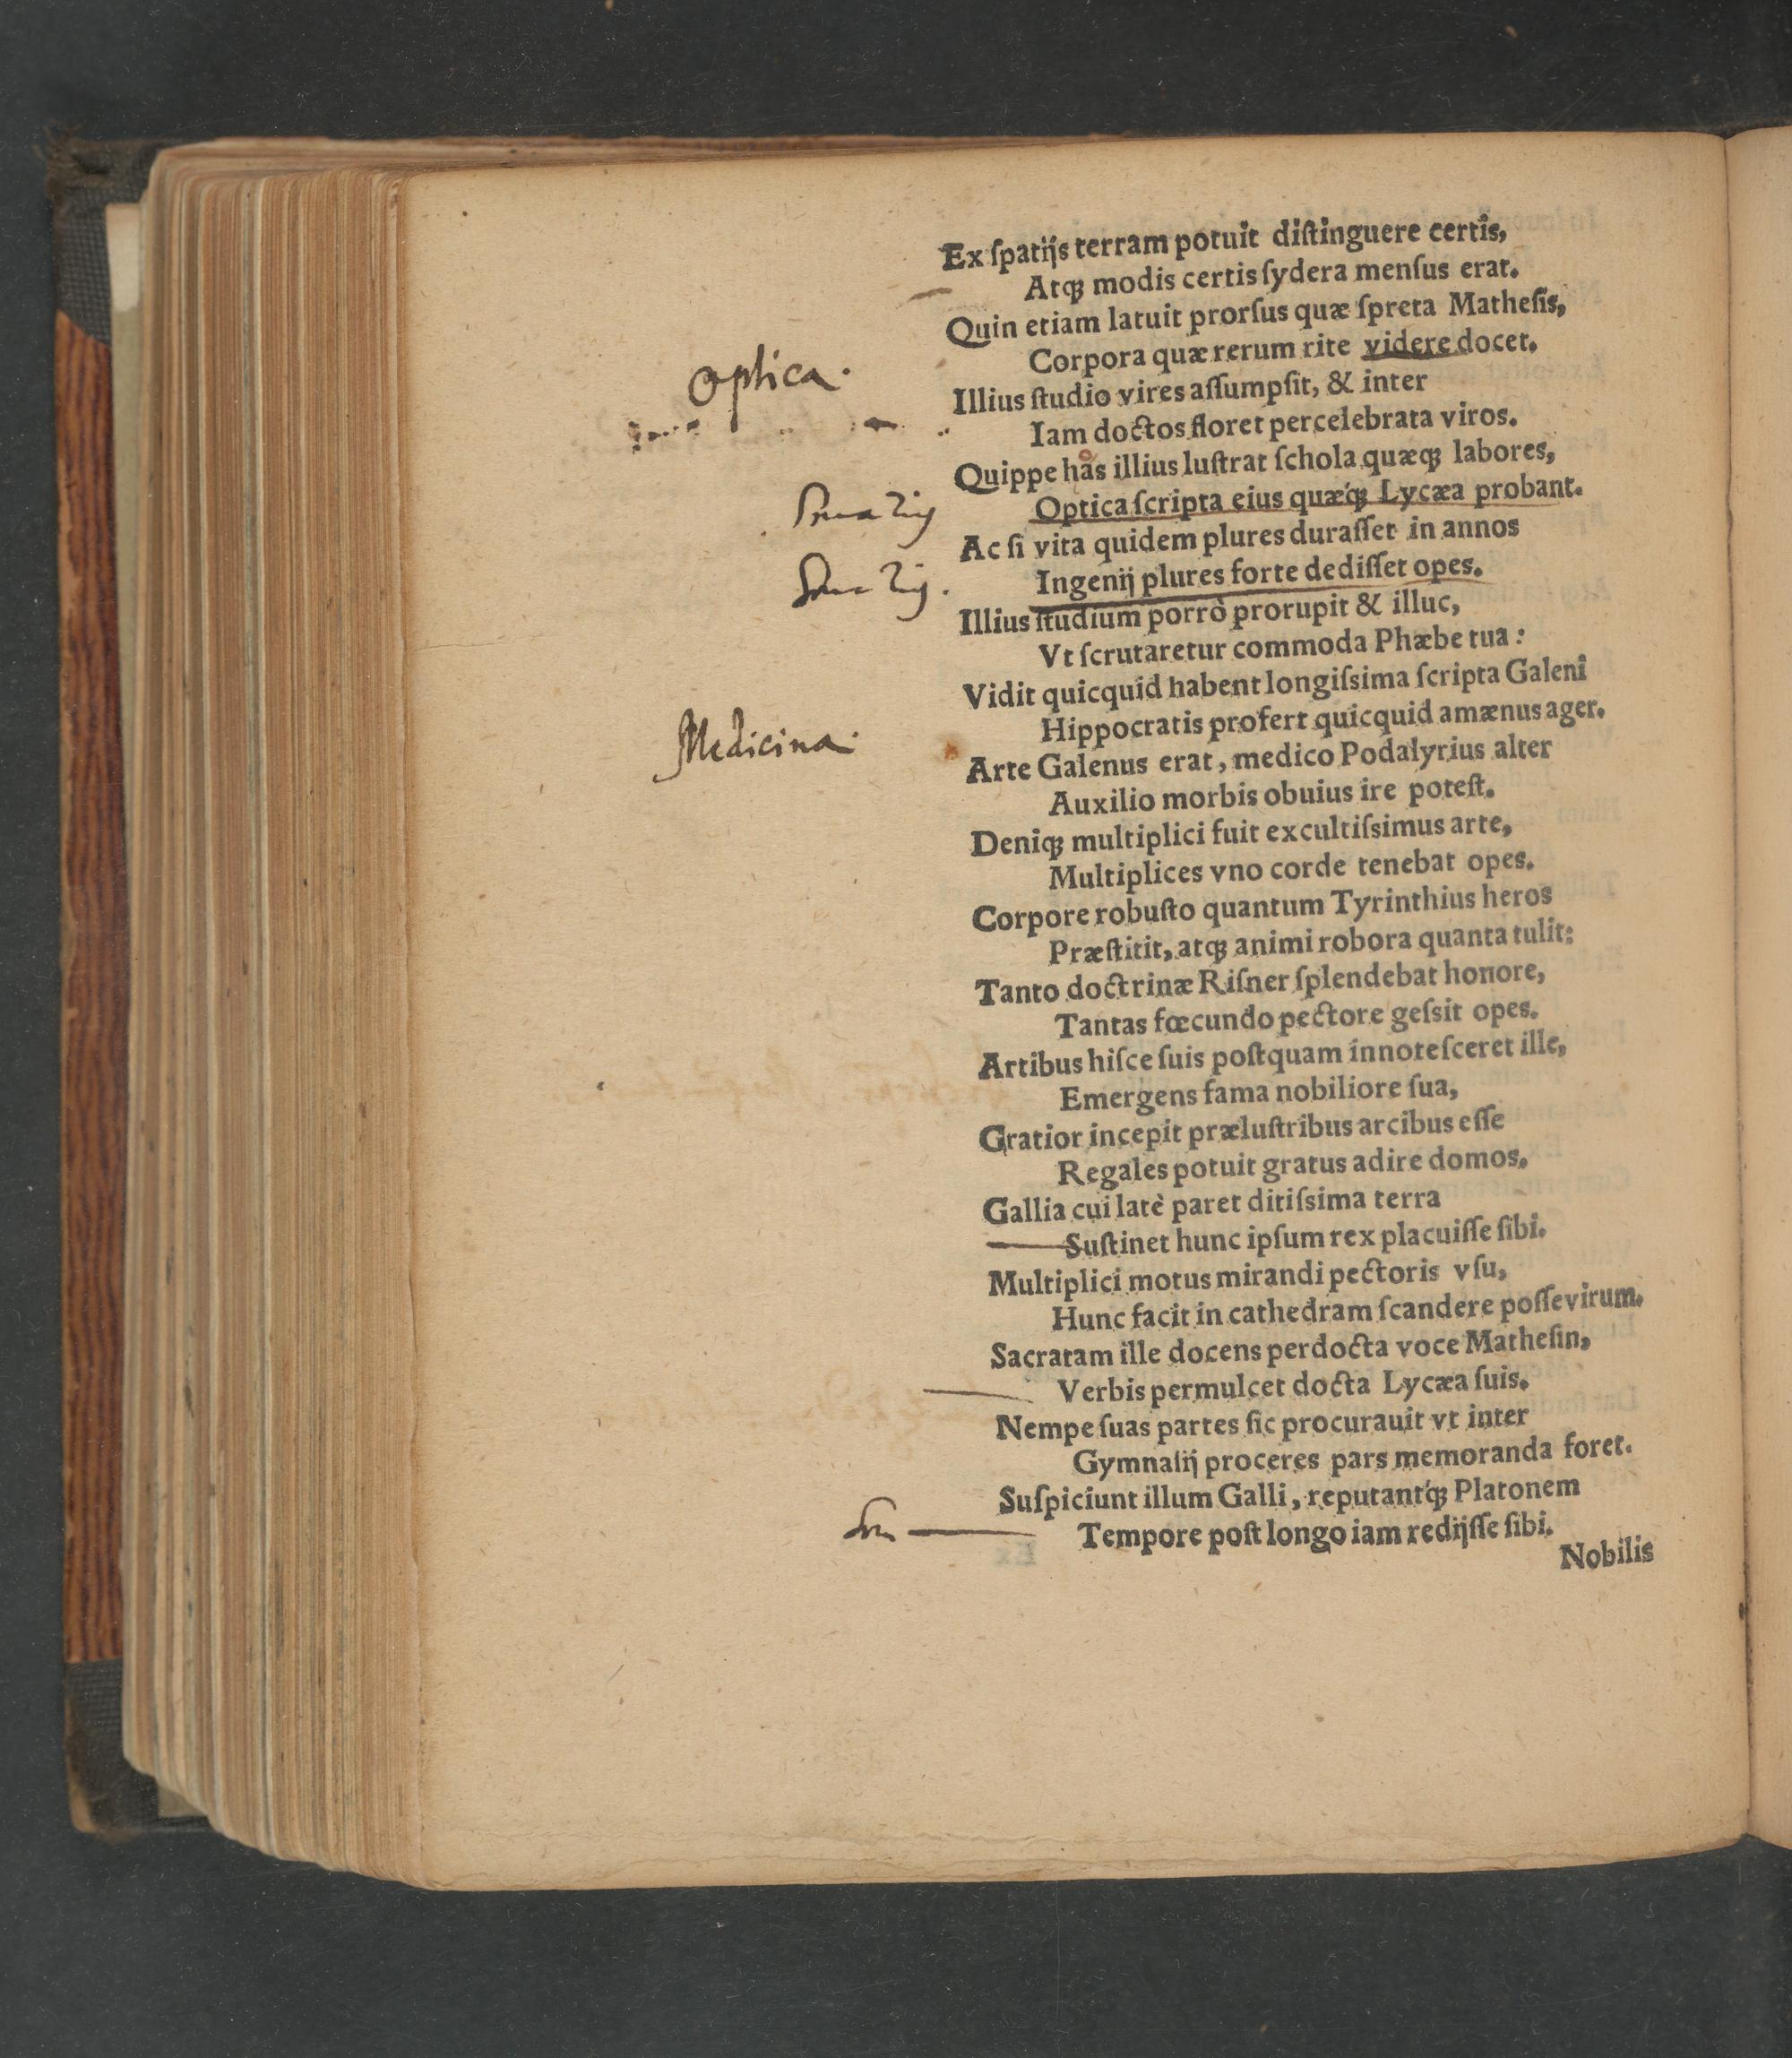 Ex ſpatijs terram potuit diſtinguere certis,
Atqꝫ modis certis ſydera menſus erat.
Quin etiam latuit prorſus quæ ſpreta Matheſis,
Corpora quæ rerum rite videre docet.
Optica.
Illius ſtudio vires aſſumpſit, & inter
Iam doctos floret percelebrata viros.
Quippe has illius luſtrat ſchola quæqꝫ labores,
Optica ſcripta eius quæq́ꝫ Lycæa probant.
Ac ſi vita quidem plures duraſſet in annos
Ingenij plures forte dediſſet opes.
Illius ſtudium porrò prorupit & illuc,
Vt ſcrutaretur commoda Phæbe tua:
Vidit quicquid habent longiſsima ſcripta Galeni
Hippocratis profert quicquid amænus ager.
Medicina.
Arte Galenus erat, medico Podalyrius alter
Auxilio morbis obuius ire poteſt.
Deniqꝫ multiplici fuit excultiſsimus arte,
Multiplices vno corde tenebat opes.
Corpore robuſto quantum Tyrinthius heros
Præſtitit, atqꝫ animi robora quanta tulit:
Tanto doctrinæ Riſner ſplendebat honore,
Tantas fœcundo pectore geſsit opes.
Artibus hiſce ſuis poſtquam innoteſceret ille,
Emergens fama nobiliore ſua,
Gratior incepit præluſtribus arcibus eſſe
Regales potuit gratus adire domos.
Gallia cui latè paret ditiſsima terra
Suſtinet hunc ipſum rex placuiſſe ſibi.
Multiplici motus mirandi pectoris vſu,
Hunc facit in cathedram ſcandere poſſe virum.
Sacratam ille docens perdocta voce Matheſin,
Verbis permulcet docta Lycæa ſuis.
Nempe ſuas partes ſic procurauit vt inter
Gymnaſij proceres pars memoranda foret.
Suſpiciunt illum Galli, reputantq́ꝫ Platonem
Tempore poſt longo iam redijſſe ſibi.
Nobilis